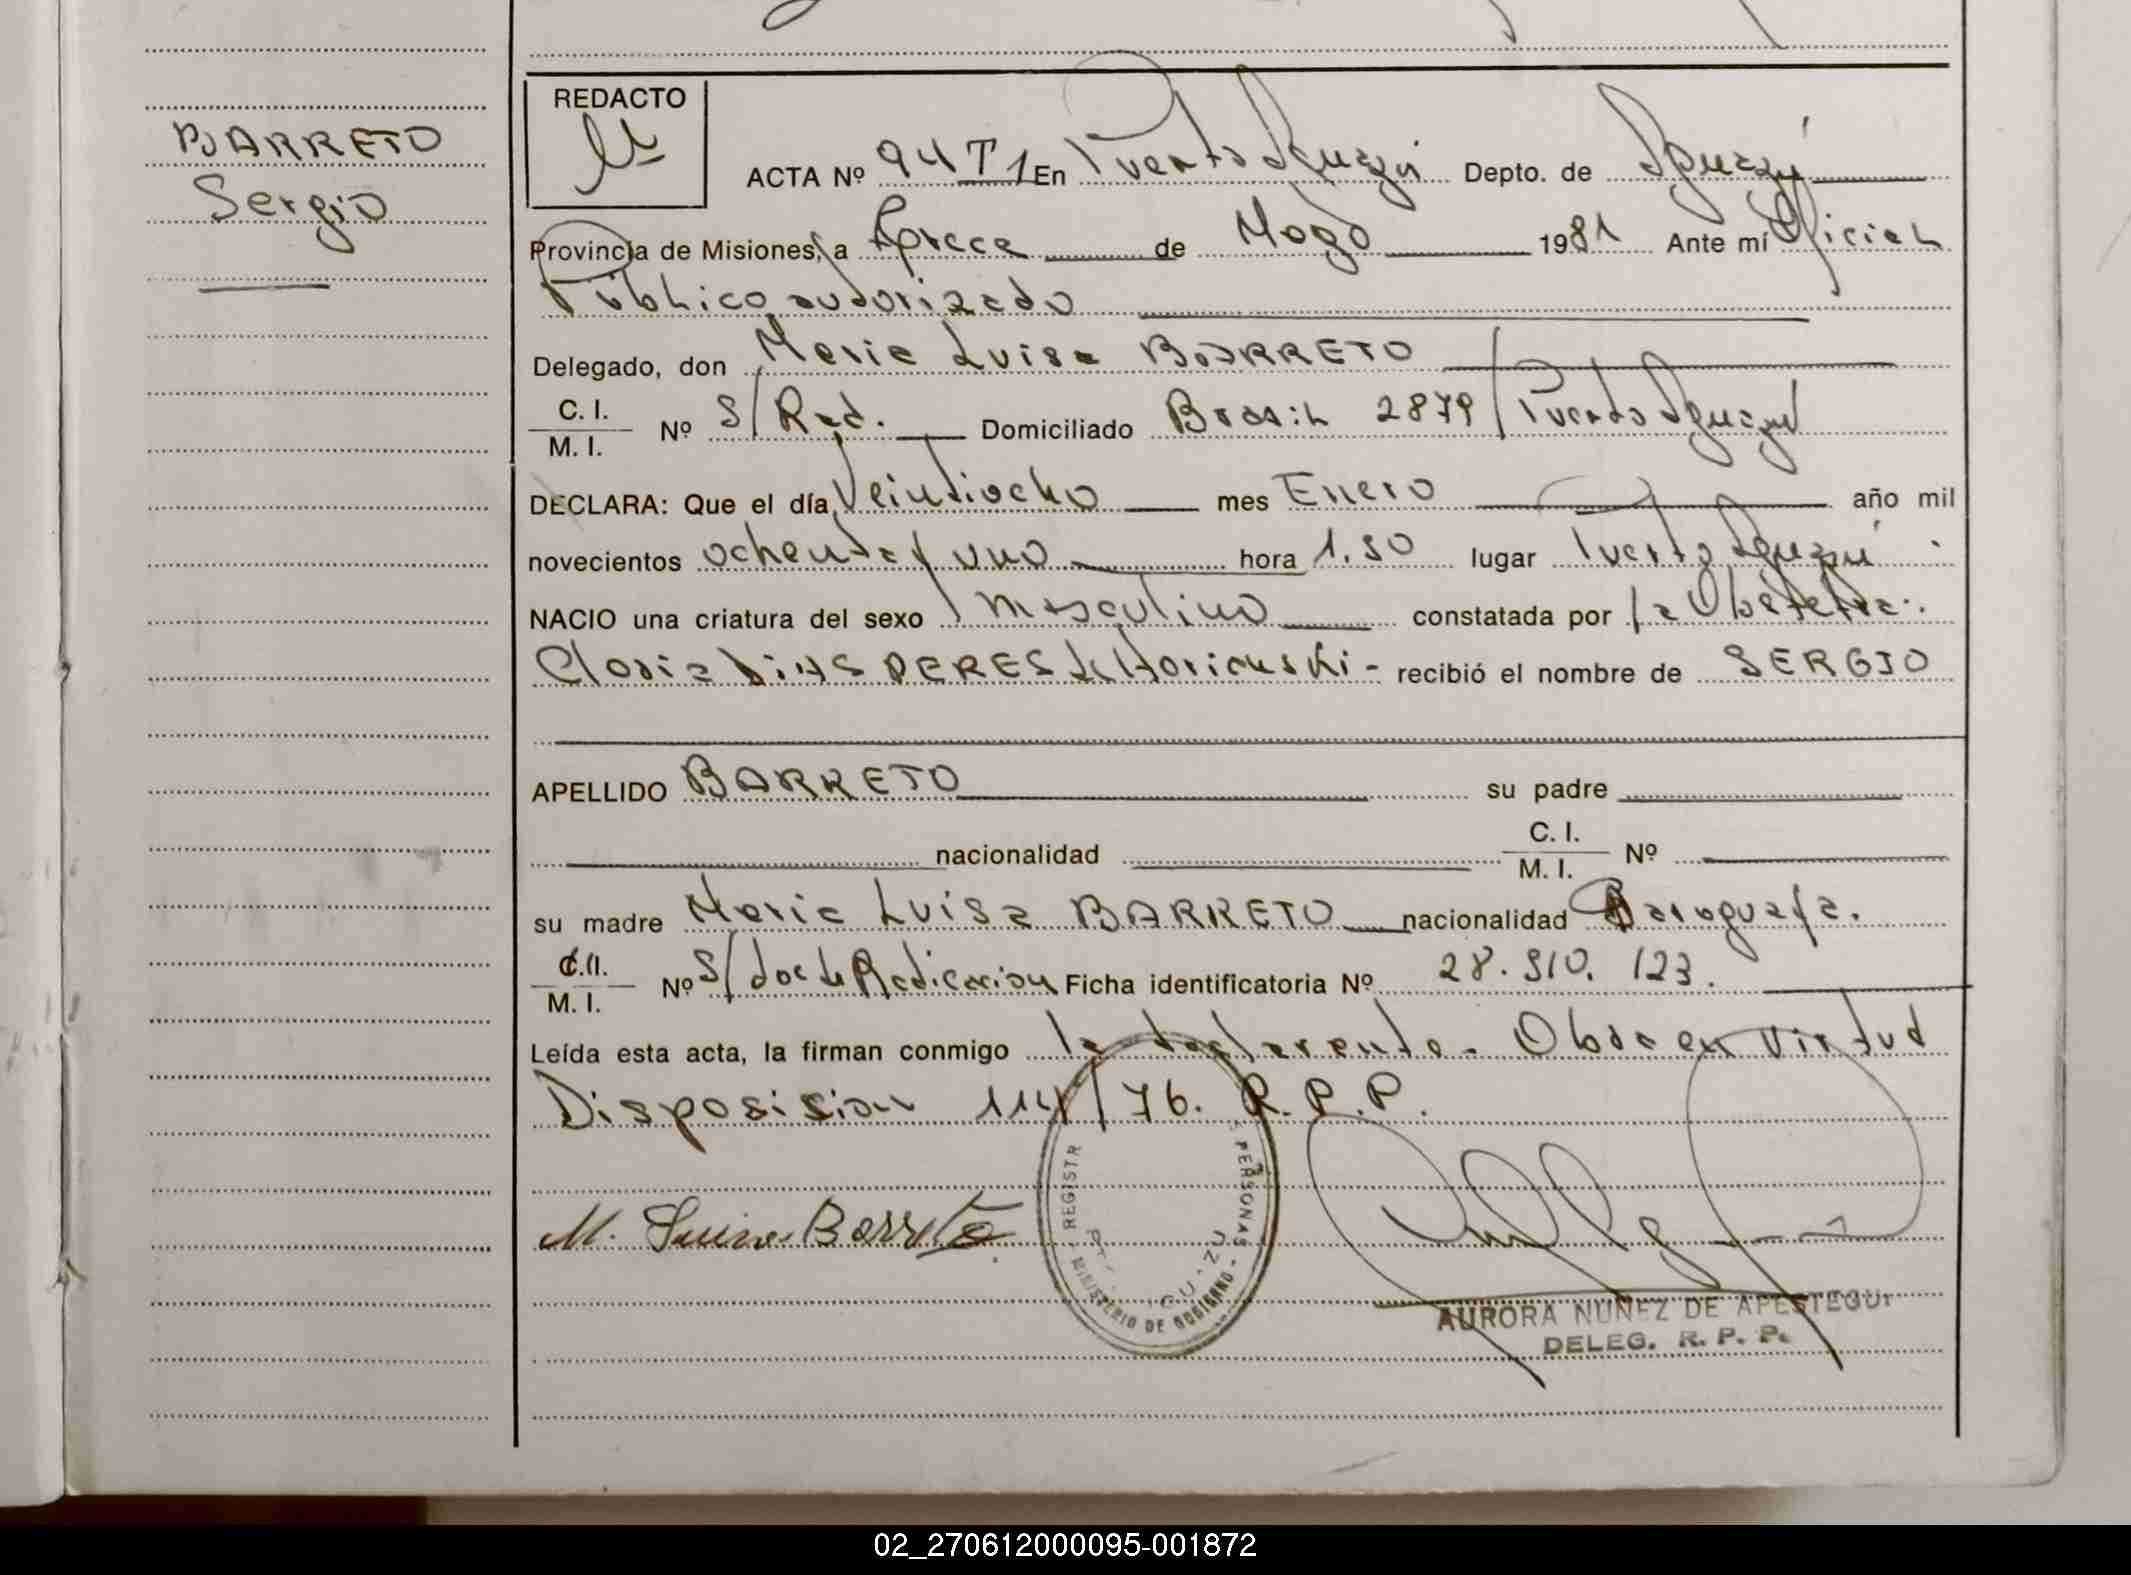 BARRETO
Sergio
REDACTO
ACTA Nº 94 T 1 En Puerto Iguazú Depto. de Iguazú
Provincia de Misiones, a de Mayo 1981 Ante mí Oficial
Público autorizado
Delegado, don Maria Luisa BARRETO
C. I.
M. I. Nº S/ Rad. Domiciliado Brasil 2879/ Puerto Iguazú
DECLARA: Que el día Veintiocho mes Enero año mil
novecientos ochenta y uno hora 1.30 lugar Puerto Iguazú
NACIO una criatura del sexo masculino constatada por la Obstetra:
recibió el nombre de SERGIO
APELLIDO BARRETO su padre
nacionalidad C. I.
M. I. Nº
su madre Maria Luisa BARRETO nacionalidad Paraguaya.
C. I.
M. I. Nº S/ doc de Radicacion Ficha identificatoria Nº 28.310.123.
Leída esta acta, la firman conmigo la declarante. Obra en virtud
Disposision 114/76. R.P.P.
M. Luisa Barreto
REGISTR PERSONAS
MINISTERIO DE GOBIERNO
AURORA NUÑEZ DE APESTEGUI
DELEG. R. P. P.
02_270612000095-001872